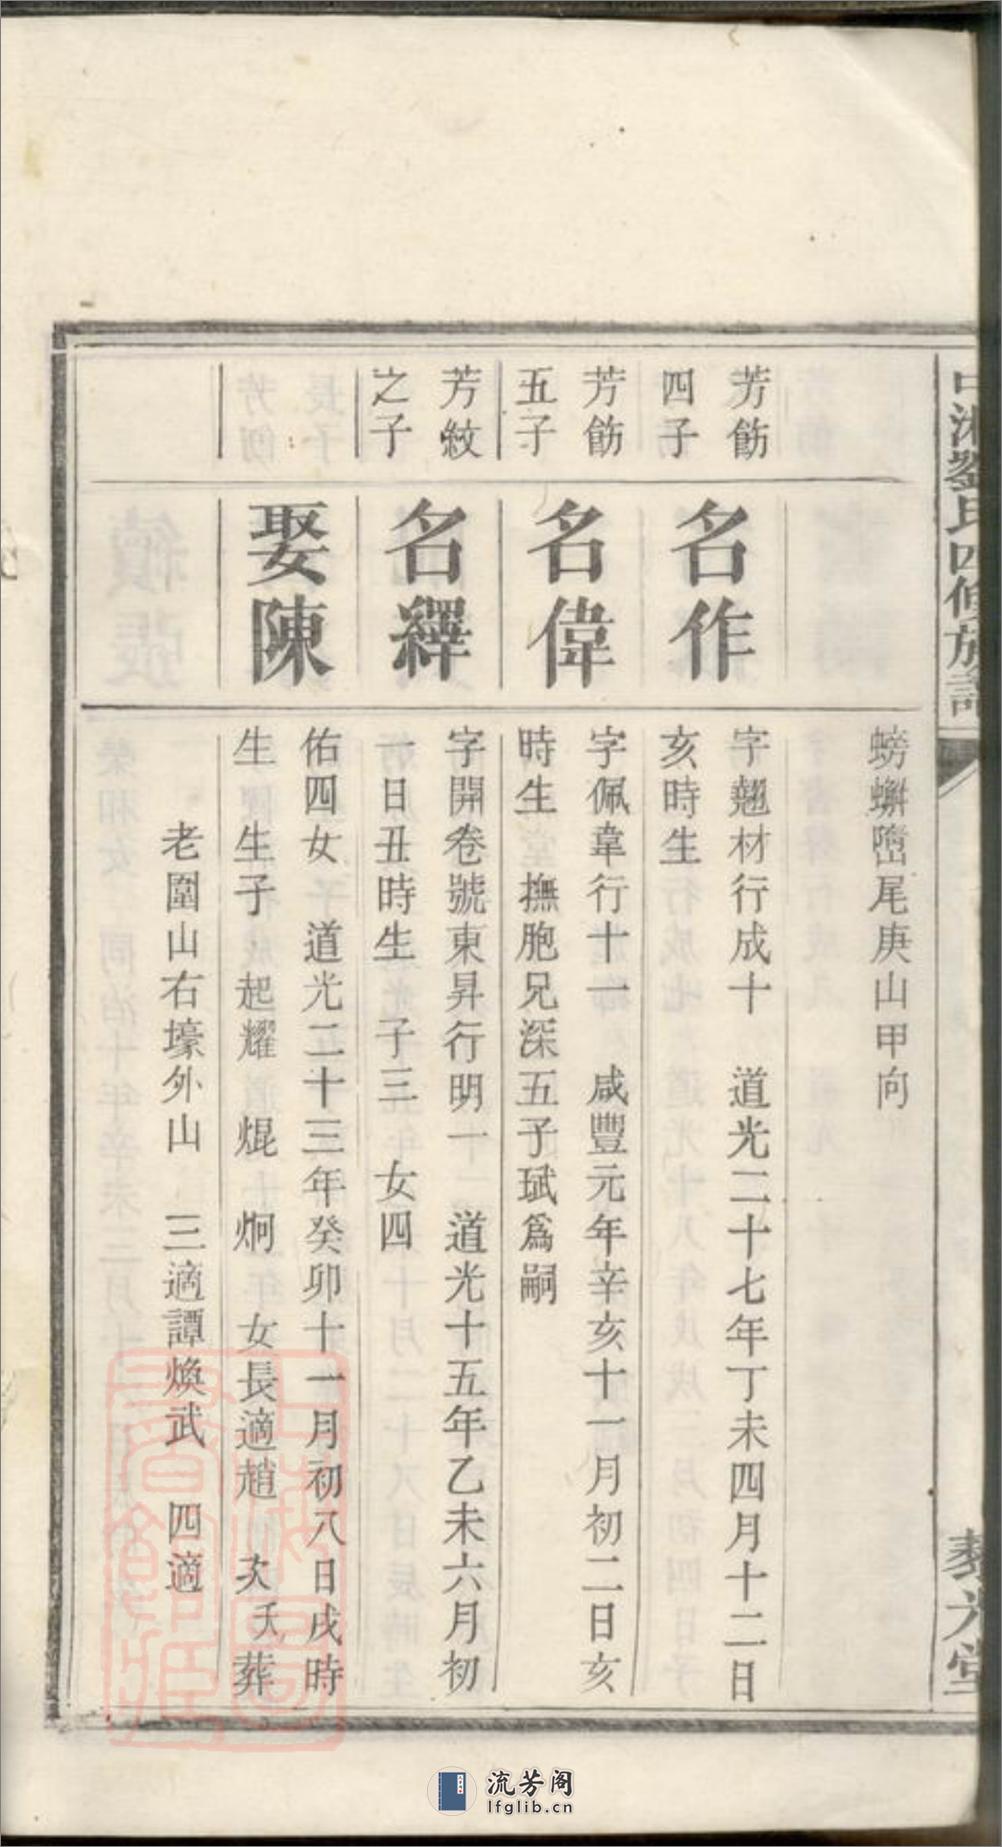 中湘劉氏四修族譜
螃蠏嶞尾庚山甲向
芳飭
四子
名作
字翹材行成十　道光二十七年丁未四月十二日
亥時生
芳飭
五子
名偉
字佩韋行十一　咸豐元年辛亥十一月初二日亥
時生　撫胞兄深五子珷爲嗣
芳紋
之子
名釋
字開卷號東昇行明一　道光十五年乙未六月初
一日丑時生　子三　女四
娶陳
佑四女　道光二十三年癸卯十一月初八日戌時
生　生子　起耀　焜　炯　女長適趙　次殀葬
老圍山右壕外山　三適譚煥武　四適
流芳阁
lfglib.cn